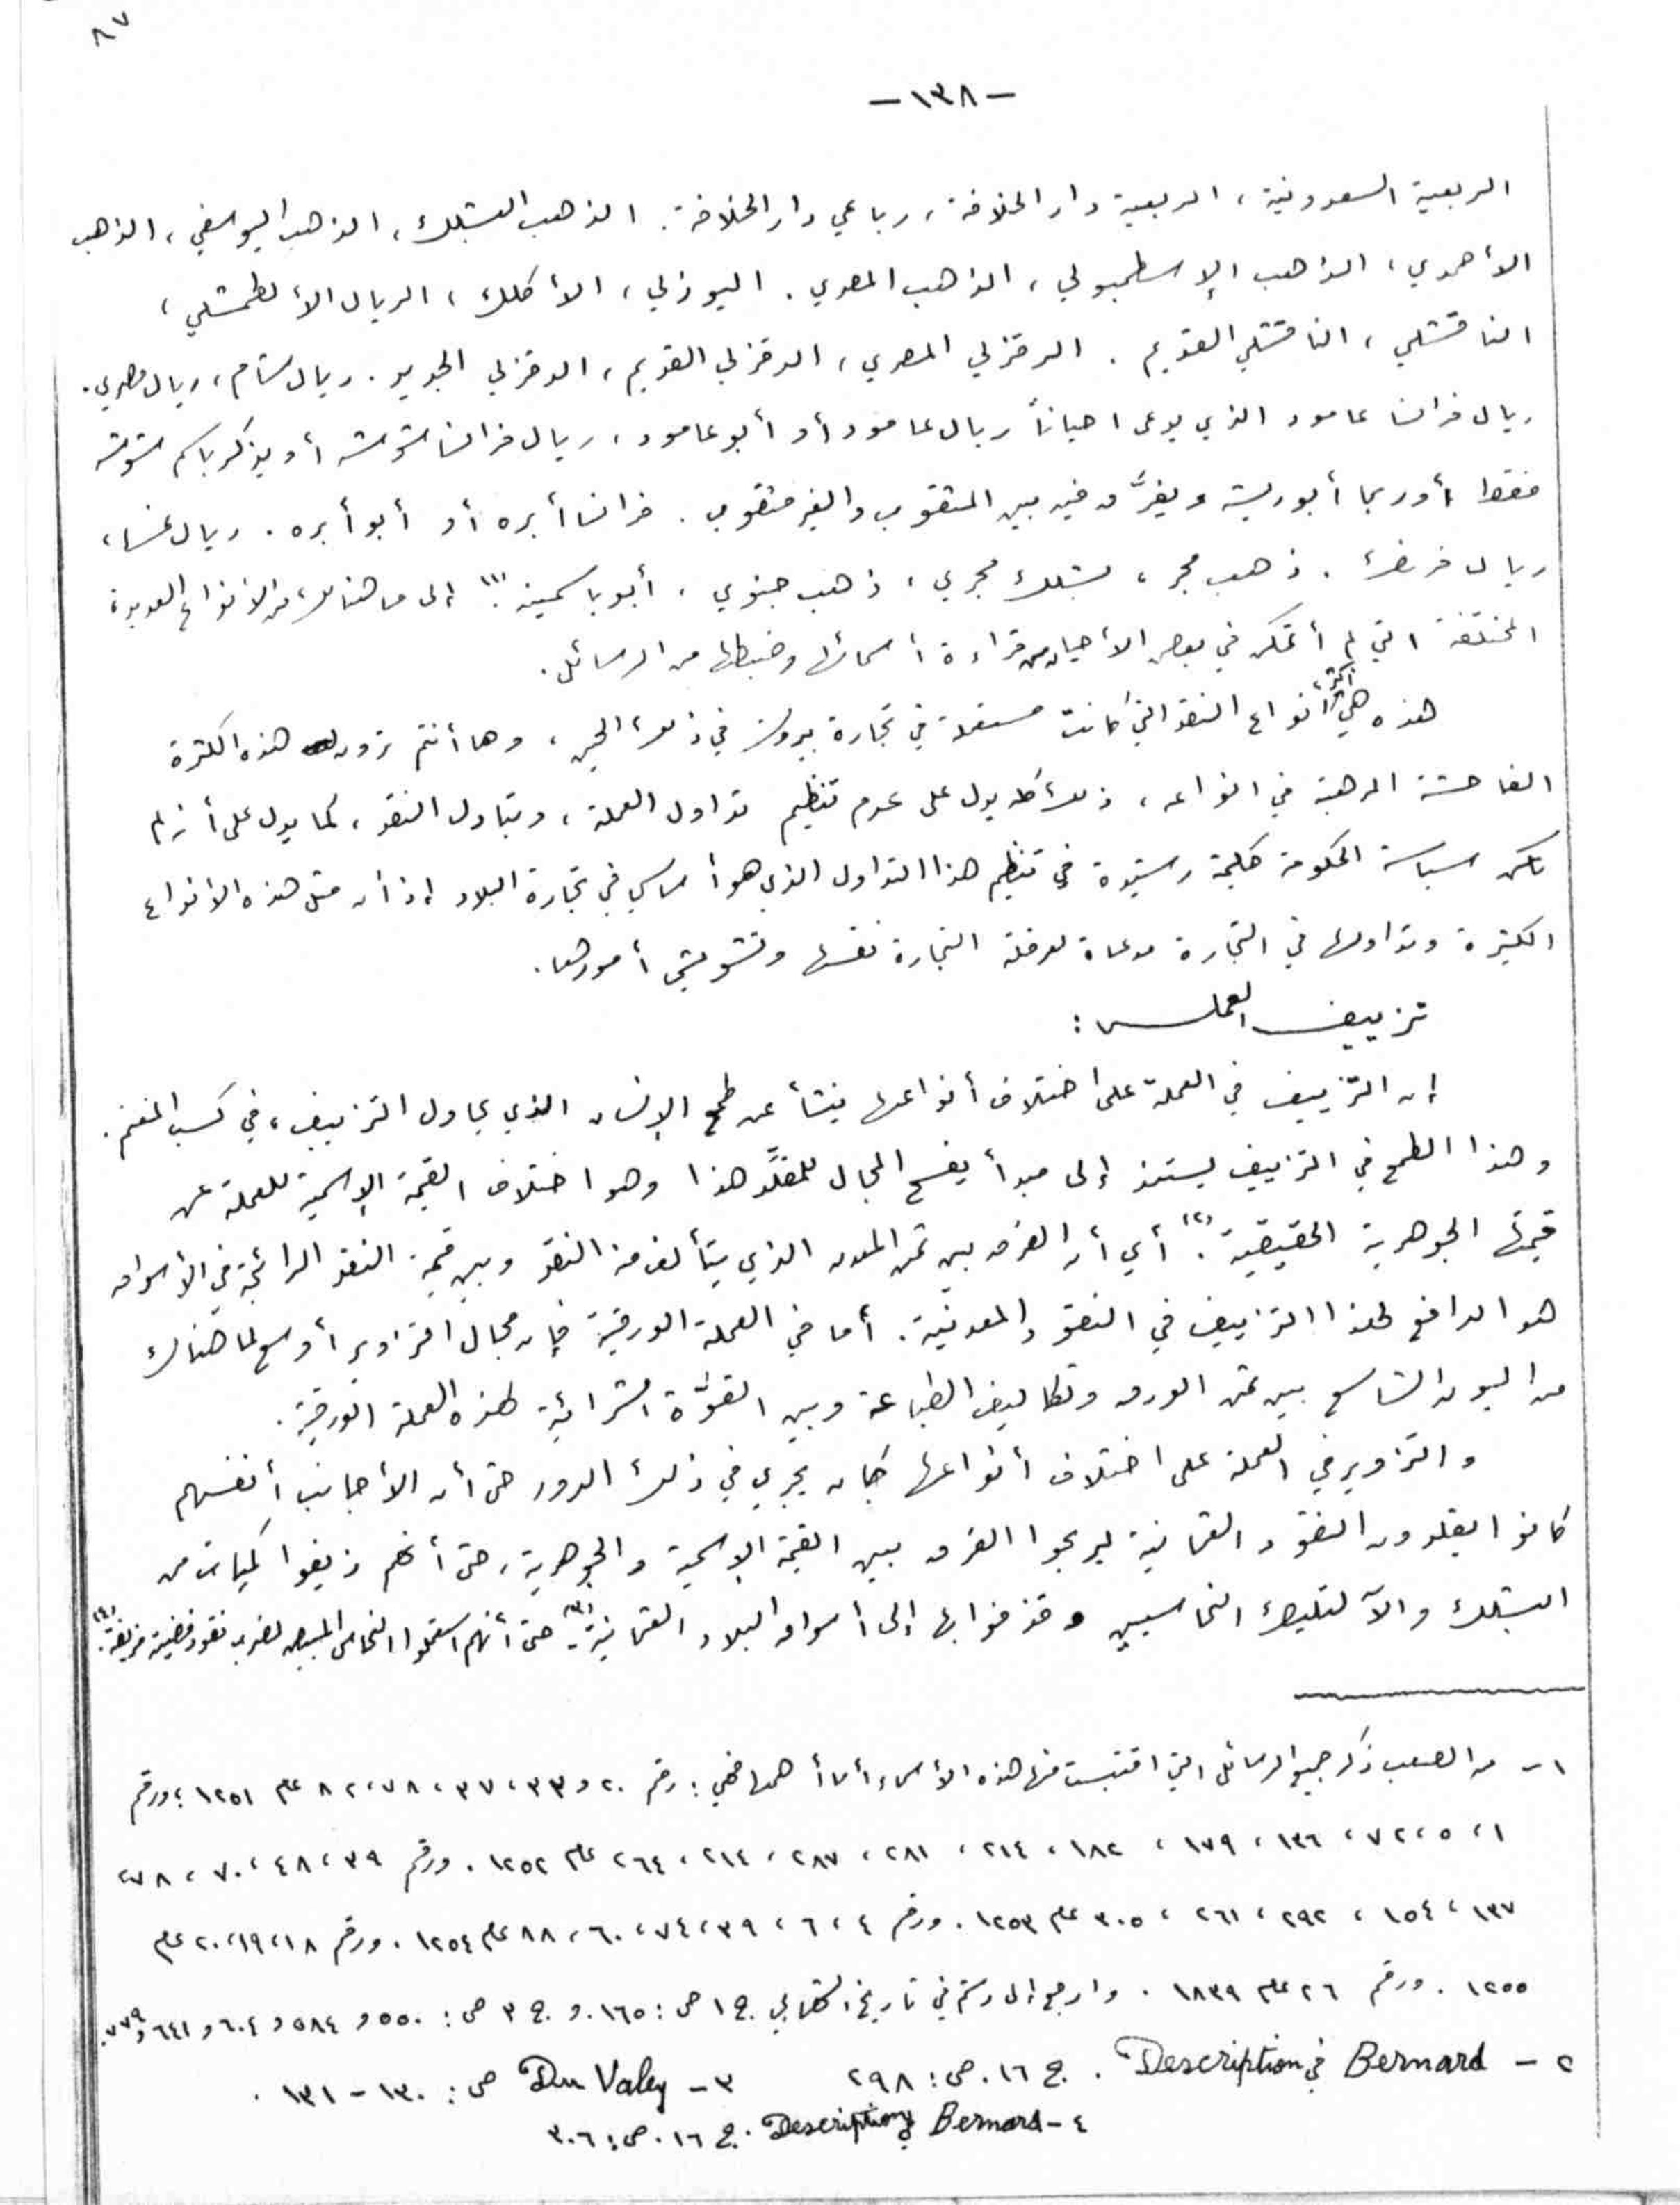 ٨٧
-١٣٨-
الربعية السعدونية، الربعية دار الخلافة، رباعي دار الخلافة. الذهب البشلك، الذهب اليوسفي، الذهب
الأحمدي، الذهب الإسطمبولي، الذهب المصري. اليوزلي، الأكلك، الريال الألطمشلي،
الناقشلي، الناقشلي القديم. الرقزلي المصري، الرقزلي القديم، الرقزلي الجديد. ريال شام، ريال مصري.
ريال فرانسا عامود الذي يدعى احياناً ريال عامود أو أبو عامود، ريال فرانسا شوشه أو يذكر باسم شوشه
فقط أو ربما أبو ريشة ويفرَّق فيه بين المثقوب والغير مثقوب. فرانسا أبره أو أبو أبره. ريال نمسا،
ريال فرنضك. ذهب مجر، بشلك مجري، ذهب جنوي، أبو ياسمينه.(١) إلى ما هنالك من الأنواع العديدة
المختلفة التي لم أتمكن في بعض الأحيان من قراءة أسمائها وضبطها من الرسائل.
هذه هي أكثر أنواع النقد التي كانت مستعملة في تجارة بيروت في ذلك الحين، وها أنتم ترون هذه الكثرة
الفاحشة المرهبة في انواعه، ذلك كله يدل على عدم تنظيم تداول العملة، وتبادل النقد، كما يدل على أنه لم
تكن سياسة الحكومة حكيمة رشيدة في تنظيم هذا التداول الذي هو أساسي في تجارة البلاد إذ أن مثل هذه الأنواع
الكثيرة وتداولها في التجارة مدعاة لعرقلة التجارة نفسها وتشويش أمورها.
تزييف العملة:
إن التزييف في العملة على اختلاف أنواعها ينشأ عن طمع الإنسان الذي يحاول التزييف، في كسب المغنم.
وهذا الطمع في التزييف يستند إلى مبدأ يفسح المجال للمقلِّد هذا وهو اختلاف القيمة الإسمية للعملة عن
قيمتها الجوهرية الحقيقية.(٢) أي أن الفرق بين ثمن المعدن الذي يتألف منه النقد وبين قيمة النقد الرائجة في الأسواق
هو الدافع لهذا التزييف في النقود المعدنية. أما في العملة الورقية فإن مجال التزوير أوسع لما هنالك
من البون الشاسع بين ثمن الورق وتكاليف الطباعة وبين القوَّة الشرائية لهذه العملة الورقية.
والتزوير في العملة على اختلاف أنواعها كان يجري في ذلك الدور حتى أن الأجانب أنفسهم
كانوا يقلدون النقود العثمانية ليربحوا الفرق بين القيمة الإسمية والجوهرية، حتى أنهم زيفوا كميات من
البشلك والآلتليك النحاسيين وقذفوا بها إلى أسواق البلاد العثمانية.(٣) حتى أنهم استعملوا النحاس المبيض لضرب نقود فضية مزيفة.(٤)
١- من الصعب ذكر جميع الرسائل التي اقتبست منها هذه الأسماء أما أهمها فهي: رقم ٢٠ و ٣٣، ٣٧، ٧٨، ٨٢ عام ١٢٥١؛ ورقم
١، ٥، ٧٢، ١٣٦، ١٧٩، ١٨٢، ٢١٤، ٢٨١، ٢٨٧، ٢١٤، ٢٦٤ عام ١٢٥٢. ورقم ٣٩، ٤٨، ٧٠، ٧٨،
١٣٧، ١٥٤، ٢٩٢، ٢٦١، ٣٠٥ عام ١٢٥٣. ورقم ٤، ٦، ٣٩، ٧٤، ٦٠، ٨٨ عام ١٢٥٤. ورقم ١٨، ١٩، ٢٠ عام
١٢٥٥. ورقم ٢٦ عام ١٨٣٩. وارجع إلى رستم في تاريخ الشهابي ج ١ ص: ١٦٥. و ج ٣ ص: ٥٥٠ و ٥٨٤ و ٦٠٤ و ٦٤١ و ٧٧٩.
٢- Bernard في Description. ج ١٦. ص: ٢٩٨ ٣- Du Valey ص: ١٣٠-١٣١.
٤- Bernard في Description. ج ١٦. ص: ٣٠٦